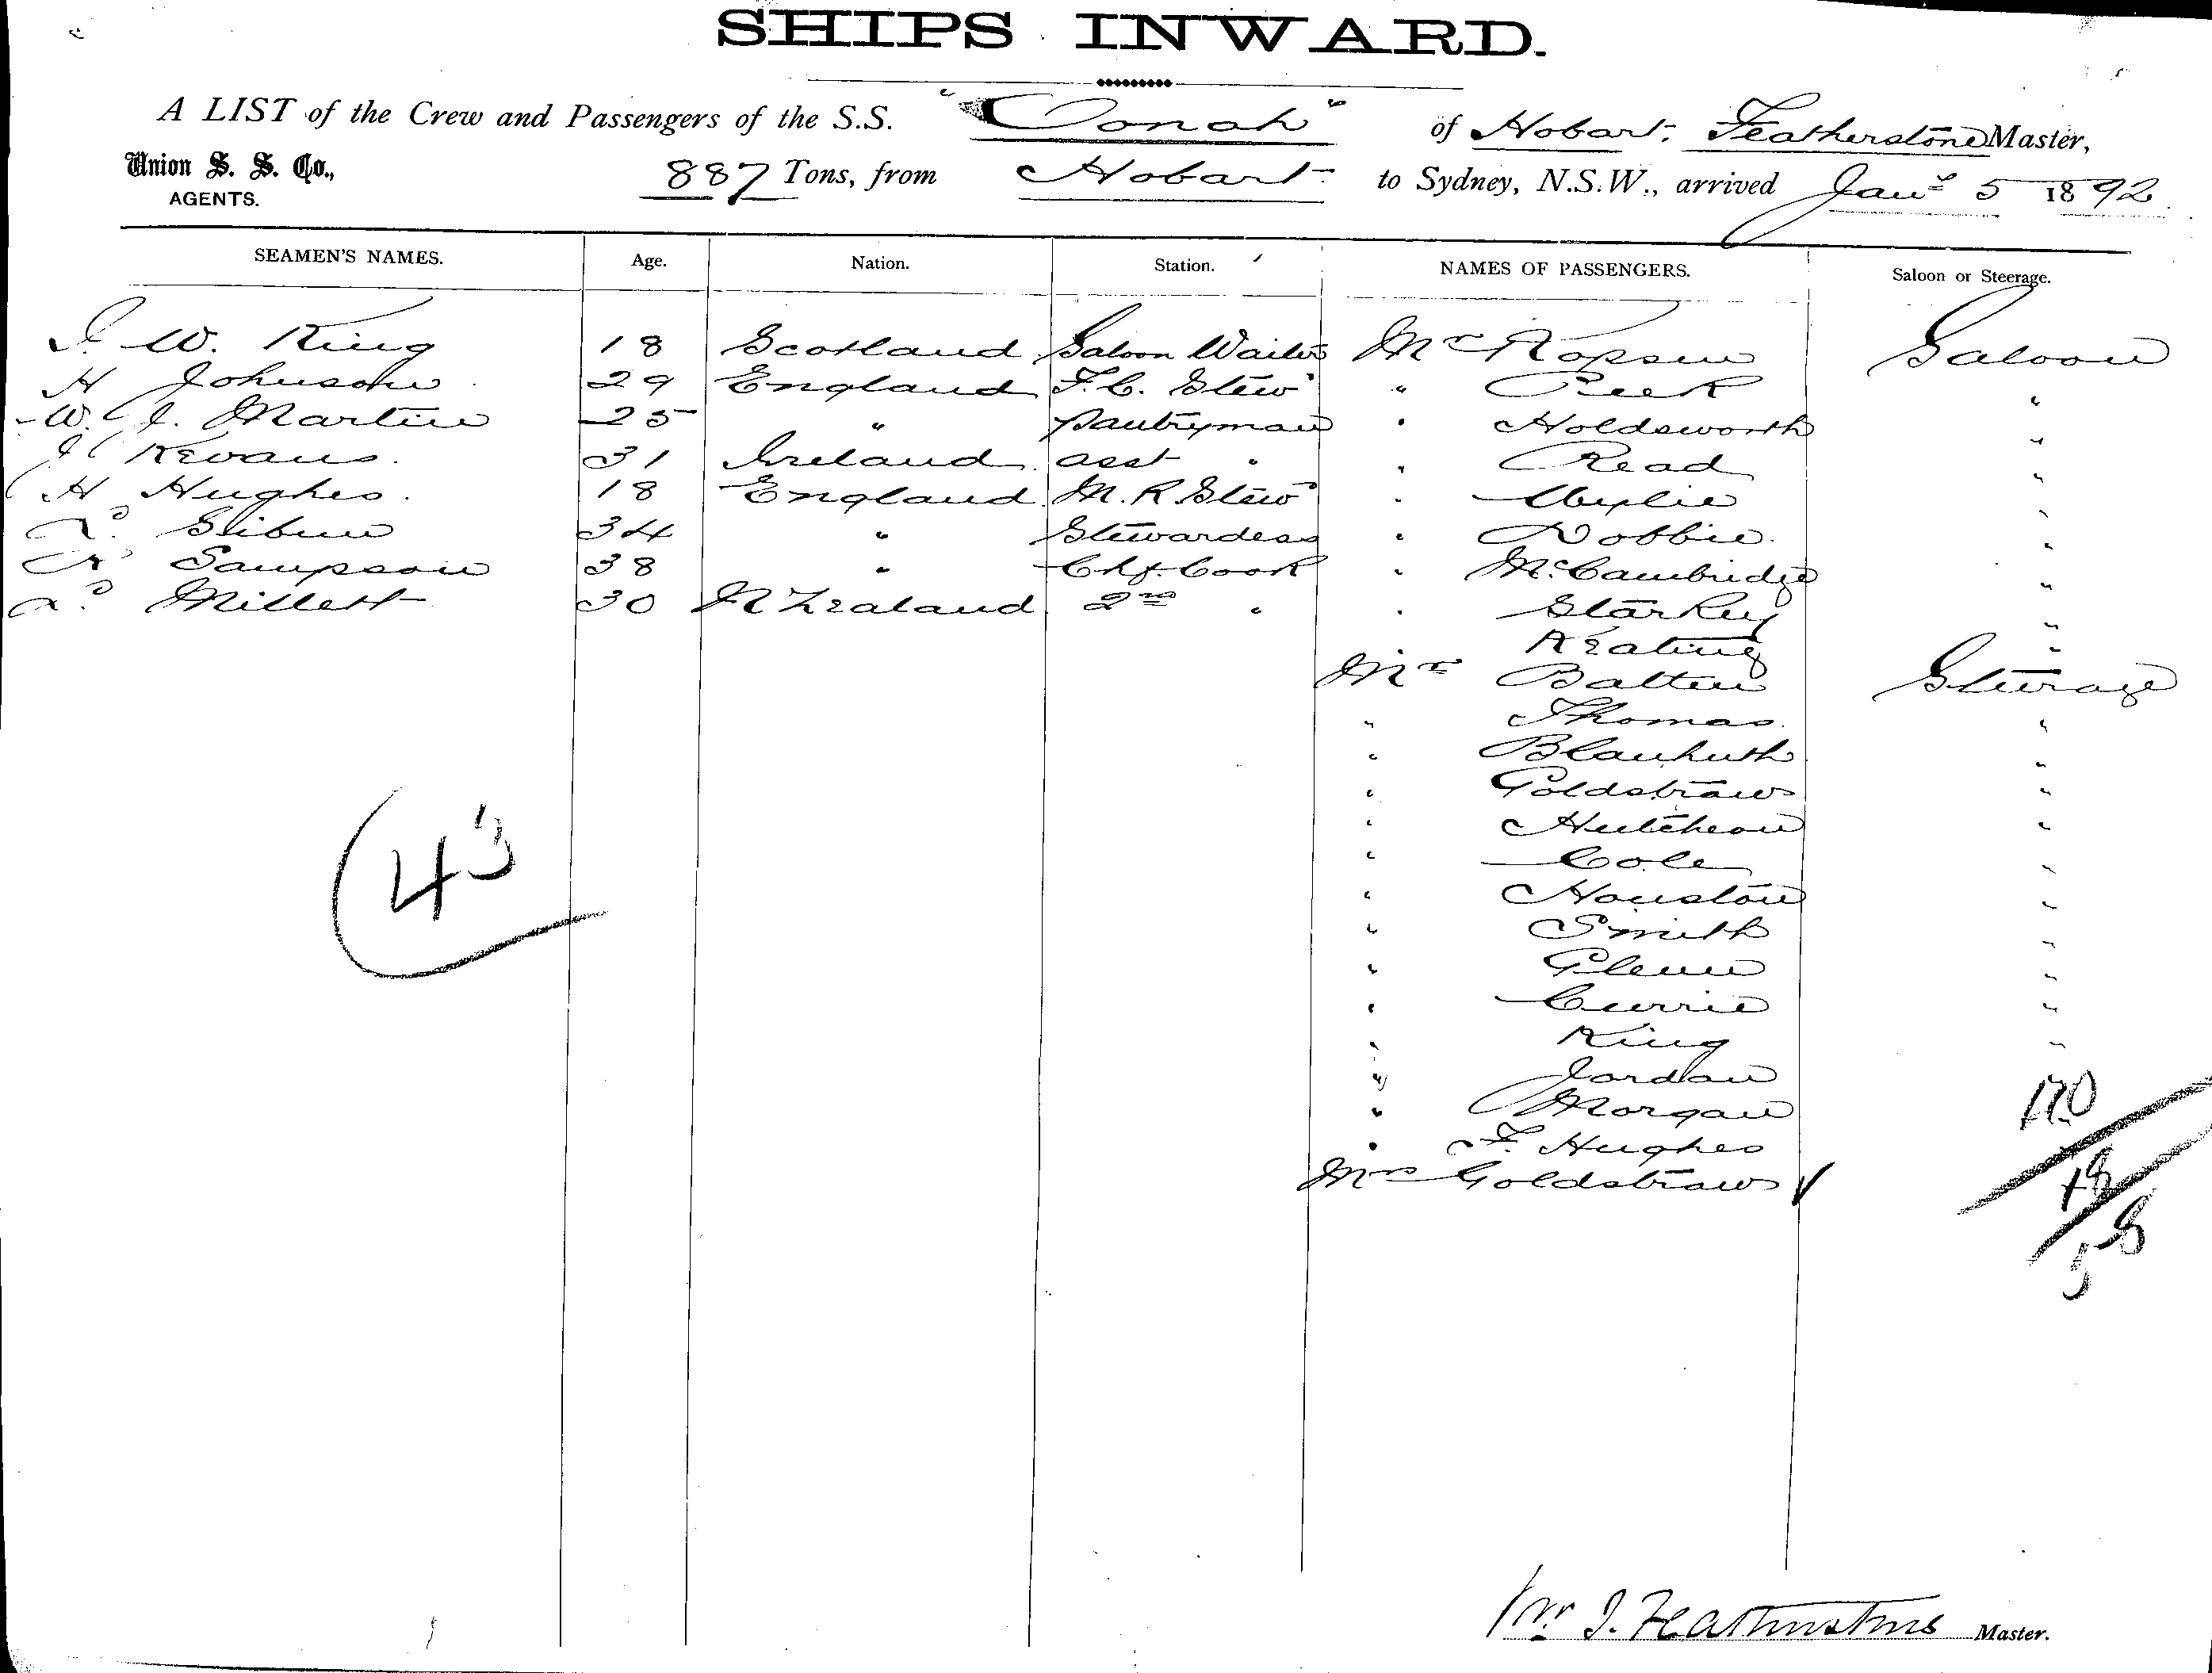 SHIPS INWARD.
A LIST of the Crew and Passengers of the S.S. "Oonah" of Hobart, Featherstone Master,
Union S. S. Co., 887 Tons, from Hobart to Sydney, N.S.W., arrived Jany 5 1892
AGENTS.
SEAMEN'S NAMES. Age. Nation. Station. NAMES OF PASSENGERS. Saloon or Steerage.
J. W. King 18 Scotland Saloon Waiter Mr Ropsen Saloon
H Johnson 29 England F.C. Stew " Peek "
W. J. Martin 25 " Pantryman " Holdsworth "
J Kevans 31 Ireland asst " " Read "
H Hughes 18 England M. R Stew " Wylie "
34 " Stewardess " Dobbie "
Sampson 38 " Chf. Cook " McCambridge "
Millett 30 N Zealand 2nd " " Starkey "
Keating "
Mr Batten Steerage
" Thomas "
" Blauhuth "
" Goldstraw "
" Hutcheon "
" Cole "
" Houston "
" Smith "
" Glenn "
" Currie "
" King "
" Jordan
" Morgan
" F. Hughes
Mrs Goldstraw
43
18
Wm J. Featherstone Master.